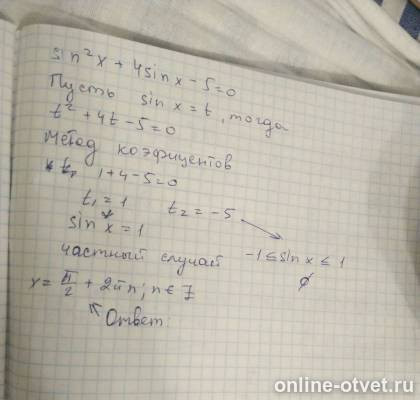 sin²x + 4sinx - 5 = 0
Пусть sin x = t, тогда
t² + 4t - 5 = 0
Метод коэфицентов
1 + 4 - 5 = 0
t₁ = 1 t₂ = -5
sin x = 1
частный случай -1 ≤ sin x ≤ 1
∅
x = π/2 + 2πn; n ∈ Z
Ответ:
online-otvet.ru